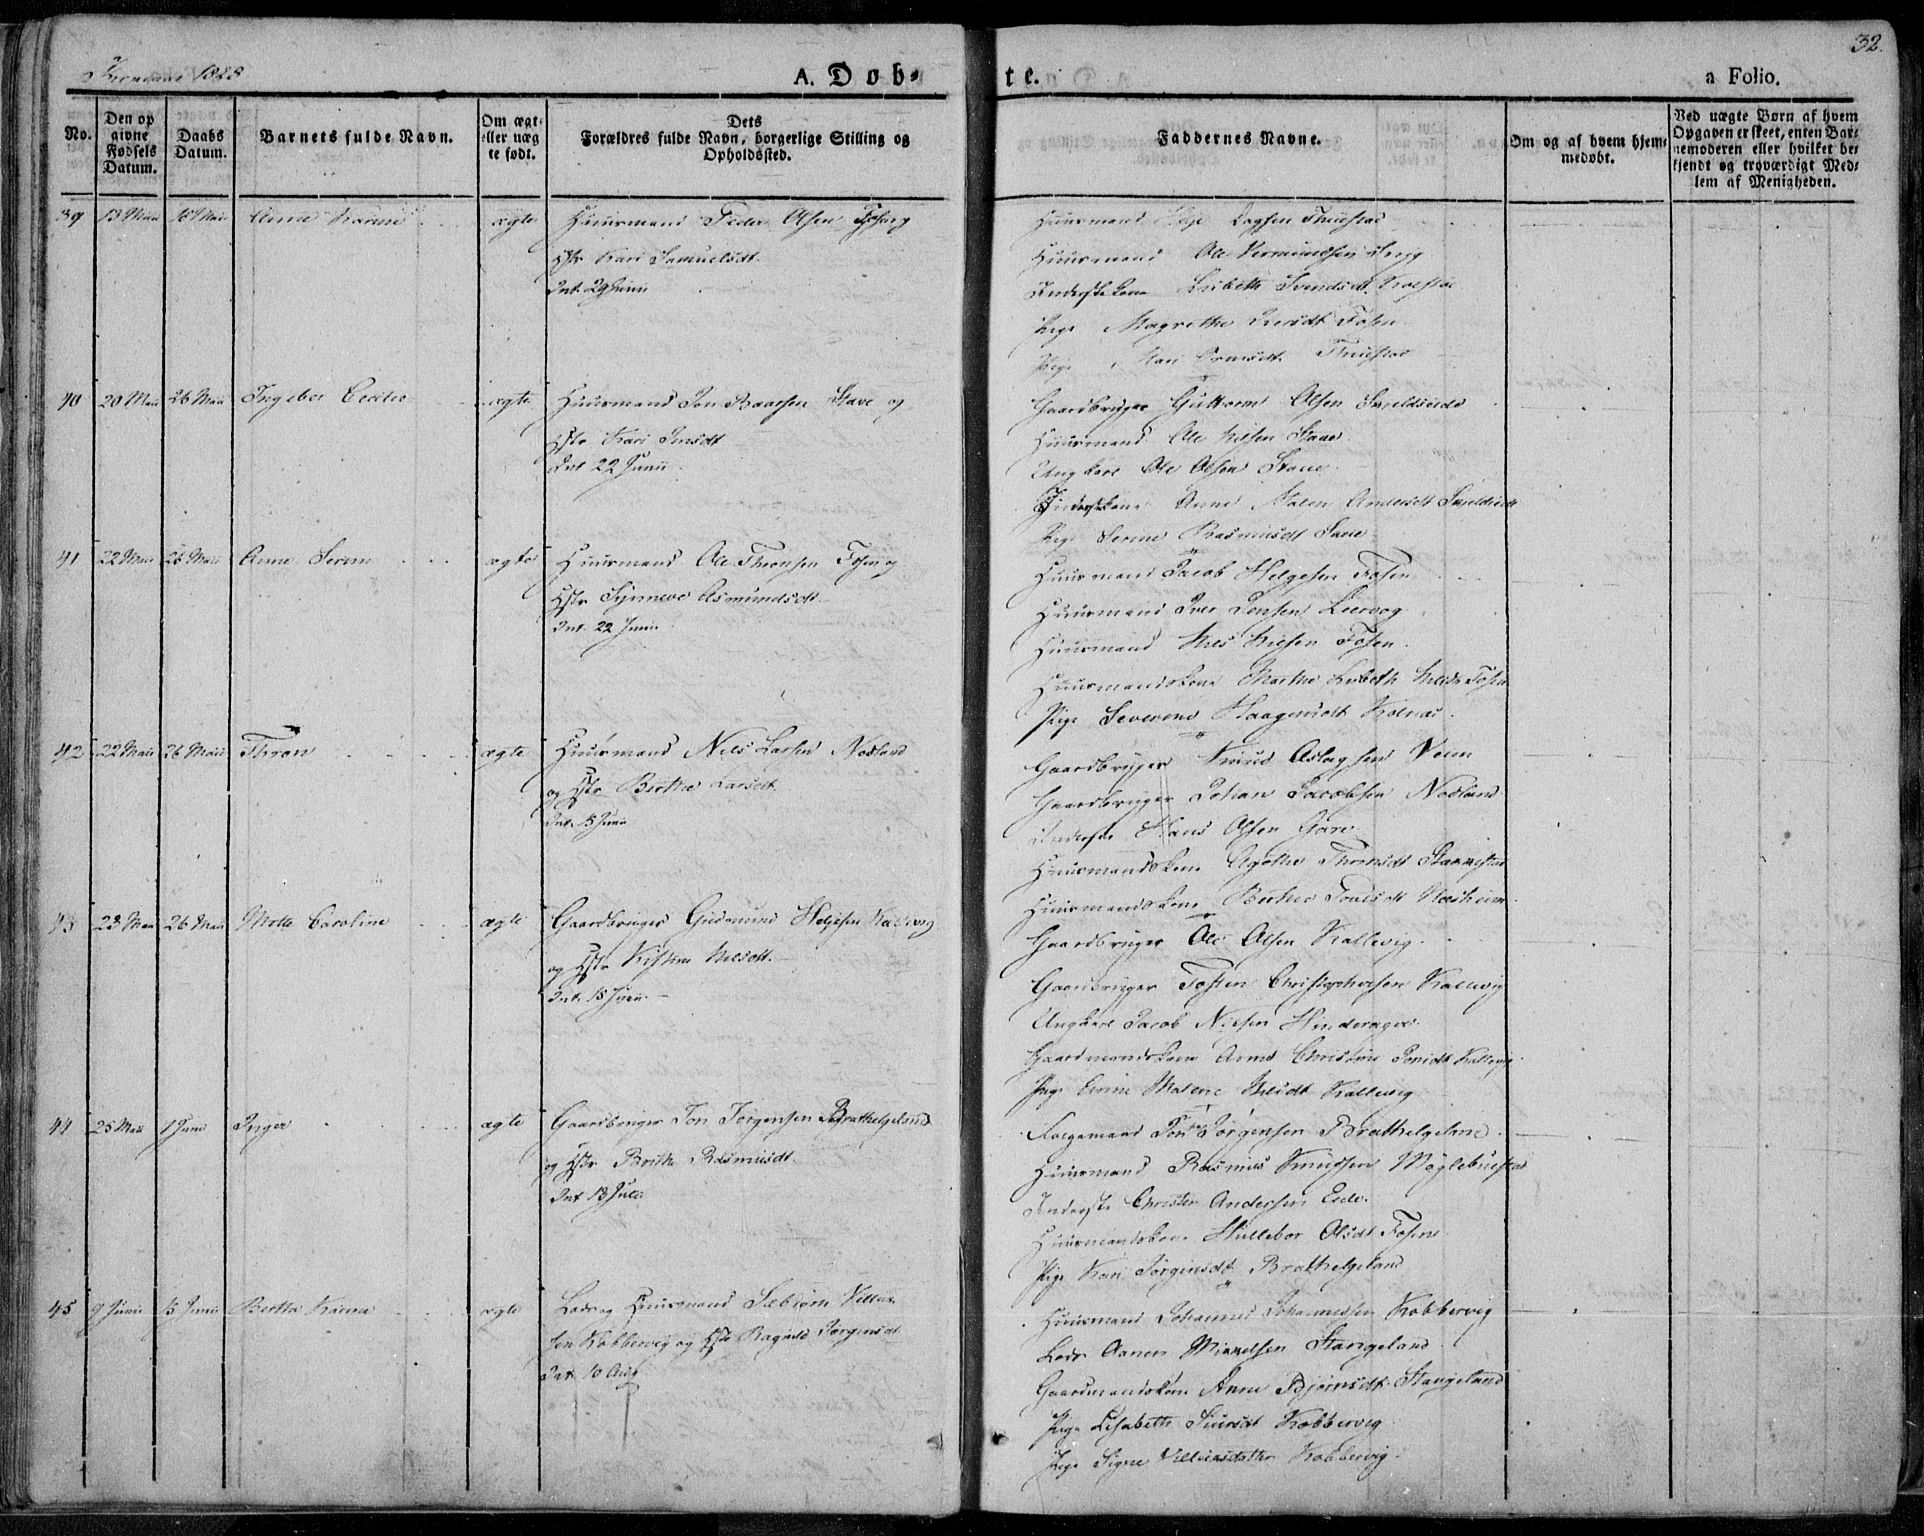 1828
A. Døb-
te.
32.
a Folio.
No.
Den op
givne
Fødsels
Datum.
Daabs
Datum.
Barnets fulde Navn.
Om ægt-
eller uæg
te født.
Dets
Forældres fulde Navn, borgerlige Stilling og
Opholdssted.
Faddernes Navne.
Om og af hvem hjem-
medøbt.
Ved uægte Børn af hvem
Opgaven er skeet, enten Bar-
nemoderen eller hvilket be-
kjendt og troværdigt Med-
lem af Menigheden.
39 13 Maii 18 Maii Anne Karine ægte Huusmand Peder Olsen Fosen og
Hstr Kari Samuelsdt.
Int. 29 Junii
Huusmand Dagsen Thuestad
Huusmand Ole
Inderstekone Lisbeth Svendsdt.
Pige Magrethe Iversdt Fosen
Pige Thuestad
40 20 Maii 26 Maii Ingebor Cecilie ægte Huusmand Jon Baarsen Stave og
Hstr Kari
Int 22 Junii
Gaardbruger Guttorm Olsen
Huusmand Ole Nilsen Stave
Ungkarl Ole Olsen Stave
Inderstekone Anne Malene Andersdt
Pige Serine Rasmusdt Stave
41 22 Maii 26 Maii Anne Serine ægte Huusmand Ole Thronsen Fosen og
Hstr Synneve Asmundsdt
Int. 22 Junii
Huusmand Jacob Helgesen Fosen
Huusmand Iver Jensen Leervog
Huusmand Nils Nilsen Fosen
Huusmandskone Marthe Lisbeth Nilsdt Fosen
Pige Severine Haagensdt Kolnes
42 22 Maii 26 Maii Thron ægte Huusmand Nils Larsen Nodland
og Hstr Berthe Larsdt
Int. 15 Junii
Gaardbruger Knud Aslagsen Veen
Gaardbruger Johan Jacobsen Nodland
Inderste Hans Olsen
Huusmandskone Agathe
Huusmandskone Berthe Næsheim
43 23 Maii 26 Maii Mette Caroline ægte Gaardbruger Gudmund Helgesen Kallevig
og Hstr Kistine Nilsdt
Int. 15 Junii
Gaardbruger Ole Olsen Kallevig
Gaardbruger Tosten Christophersen Kallevig
Ungkarl Jacob Nilsen Hinderager
Gaardmandskone Anne Christine Kallevig
Pige Malene Nilsdt Kallevig
44 25 Maii 1 Junii Inger ægte Gaardbruger Jon Jørgensen Brathelgeland
og Hstr Brithe Rasmusdt
Int 13 Julii
Folgemand Jon Jørgensen Brathelgeland
Huusmand Rasmus Knudsen Møglebuestad
Inderste Christen Andersen Eide
Huusmandskone Hullebor Olsdt Fosen
Pige Kari Jørgensdt Brathelgeland
45 9 Junii 15 Junii Bertha Karine ægte Lods og Huusmand Sæbiørn Villum-
sen Kobbervig og Hstr Ragnild Jørgensdt
Int. 10 Aug
Huusmand Johannes Johannessen Kobbervig
Lods Aanen Mikkelsen Stangeland
Gaardmandskone Anne Bjørnsdt Stangeland
Pige Lisabeth Siursdt Kobbervig
Pige Signe Villumsdatter Kobbervig